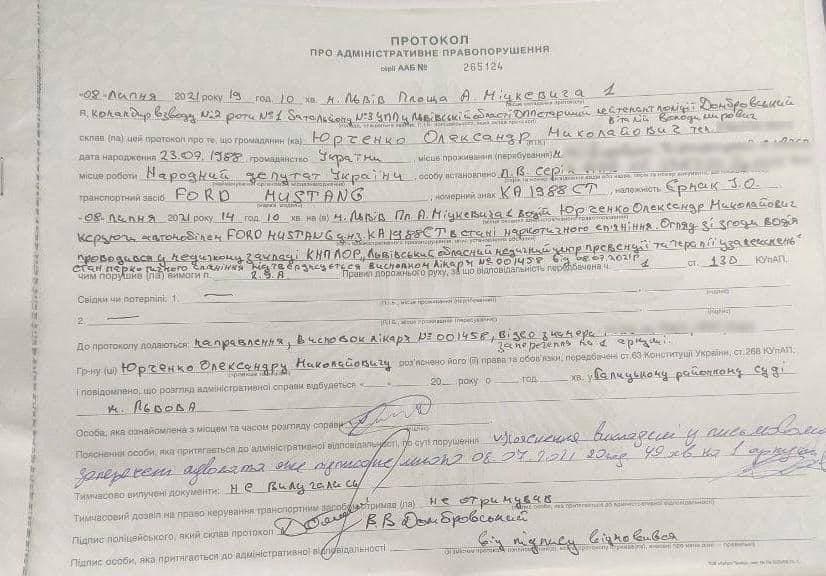 ПРОТОКОЛ
ПРО АДМІНІСТРАТИВНЕ ПРАВОПОРУШЕННЯ
серії ААБ № 265124
«08» Липня 2021 року 19 год. 10 хв. м. Львів Площа А. Міцкевича 1
Я, Командир взводу №2 роти №1 батальйону №3 УПП у Львівській області старший лейтенант поліції Домбровський
Віталій Володимирович
склав (ла) цей протокол про те, що громадянин (ка) Юрченко Олександр Миколайович тел.
дата народження 23.09.1988 громадянство України, місце проживання (перебування) м.
місце роботи Народний депутат України, особу встановлено п.в. серія
транспортний засіб FORD MUSTANG, номерний знак КА1988СТ, належність Єрмак І.О.
«08» Липня 2021 року 14 год. 10 хв. на (в) м. Львів Пл А. Міцкевича 1 водій Юрченко Олександр Миколайович
керував автомобілем FORD MUSTANG днз. КА1988СТ в стані наркотичного сп'яніння. Огляд зі згоди водія
проводився у медичному закладі КНП ЛОР „Львівський обласний медичний центр превенції та терапії узалежнень"
стан наркотичного сп'яніння підтверджується висновком лікаря №001458 від 08.07.2021р.
чим порушив (ла) вимоги п. 2.9.А Правил дорожнього руху, за що відповідальність передбачена ч. 1 ст. 130 КУпАП.
Свідки чи потерпілі: 1.
2.
До протоколу додаються: направлення, висновок лікаря №001458, відео з камери
заперечення на 1 аркуші.
Гр-ну (ці) Юрченко Олександру Миколайовичу роз'яснено його (її) права та обов'язки, передбачені ст.63 Конституції України, ст.268 КУпАП,
і повідомлено, що розгляд адміністративної справи відбудеться « » 20 року о год. хв. у Галицькому районному суді
м. Львова
Особа, яка ознайомлена з місцем та часом розгляду справи
Пояснення особи, яка притягається до адміністративної відповідальності, по суті порушення Пояснення викладені у письмових
запереченнях адвоката 08.07.2021 20 год 49 хв на 1 аркуші
Тимчасово вилучені документи: не вилучались
Тимчасовий дозвіл на право керування транспортним засобом отримав (ла) не отримував
Підпис поліцейського, який склав протокол В.В Домбровський
Підпис особи, яка притягається до адміністративної відповідальності від підпису відмовився